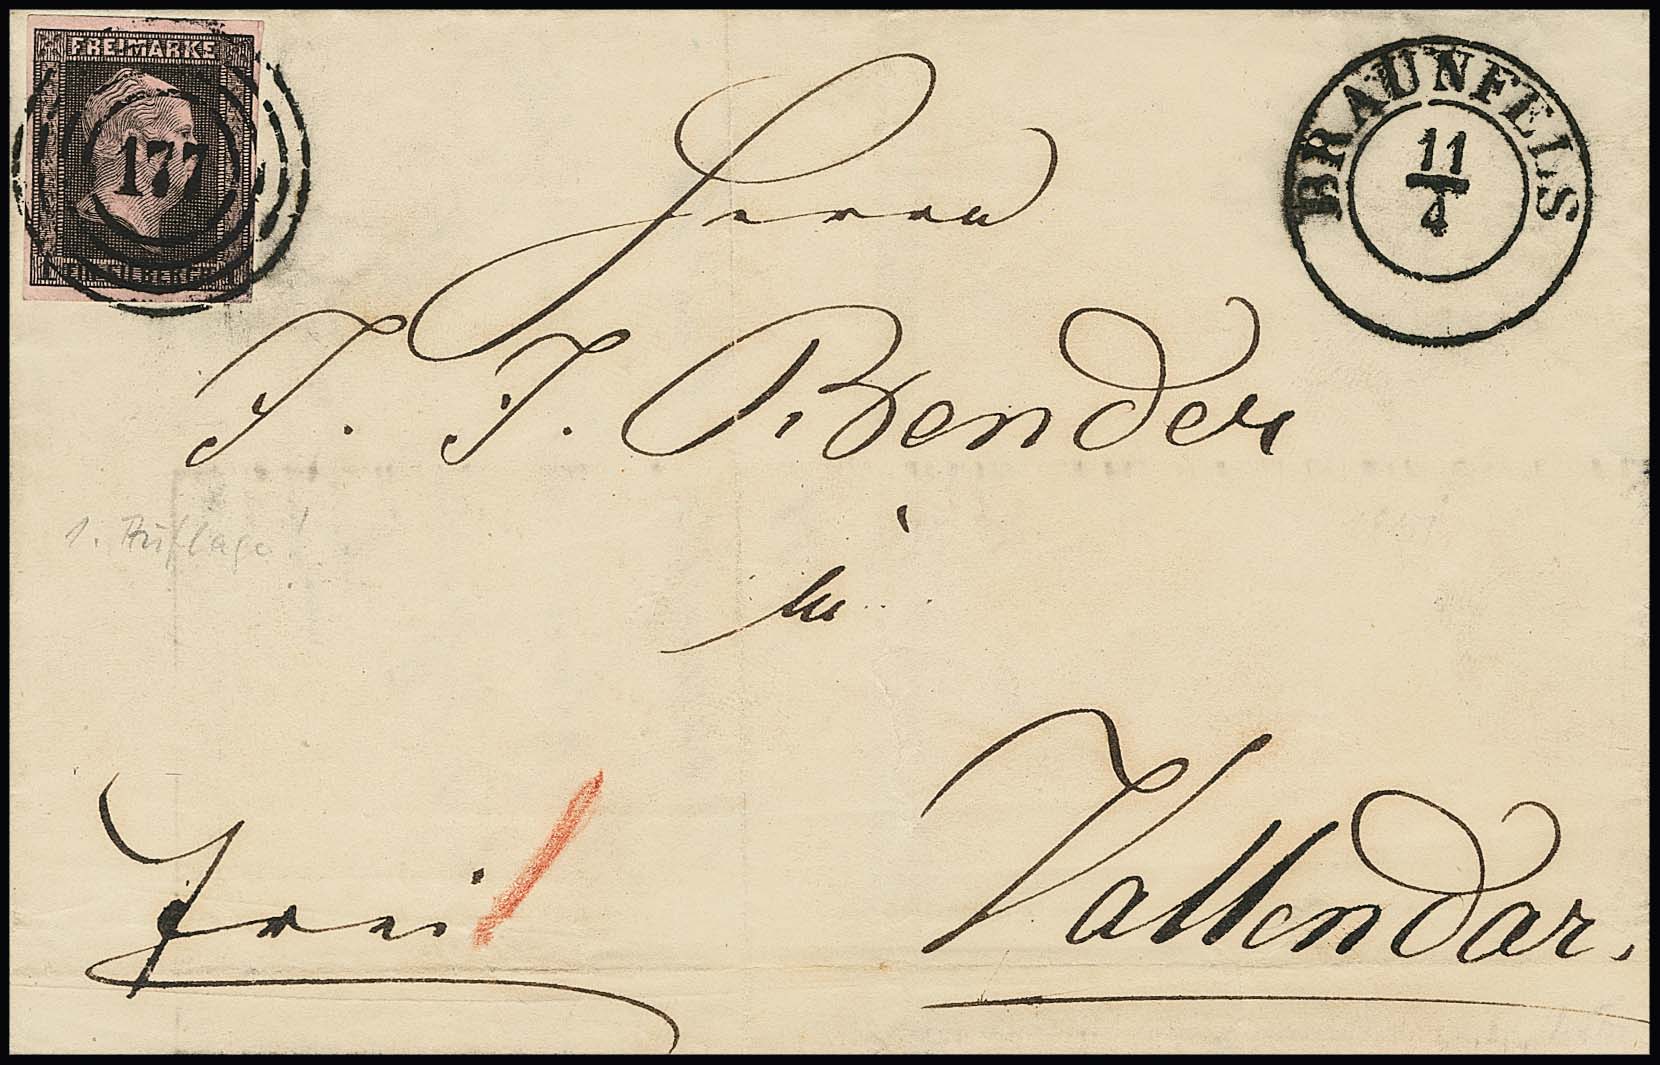 FREIMARKE
177
EIN SILBERGR.
BRAUNFELS
11
4
Herrn
J. J. Bender
in
1. Auflage!
frei
Vallendar.